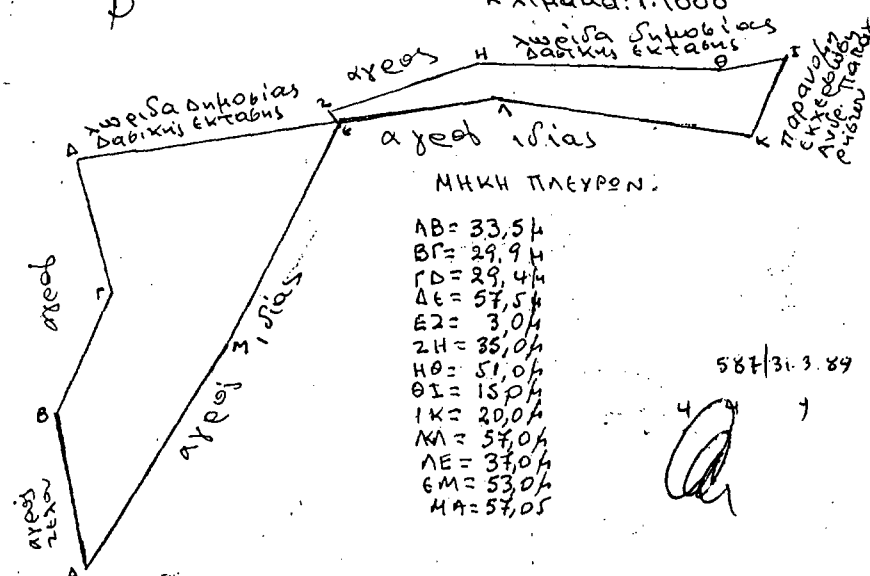 Κλίμακα: 1:1000
λωρίδα δημοσίας
Δασικής εκτάσης
αγρος
Η
Θ
Ι
λωρίδα Δημοσίας
Δασικής εκτάσης
Ζ
Ε
Λ
Κ
Δ
παρανομη
εκχερσωση
Ανδρ. Παπα
αγρος ιδίας
ΜΗΚΗ ΠΛΕΥΡΩΝ:
ΑΒ= 33,5μ
ΒΓ= 29,9μ
ΓΔ= 29,4μ
ΔΕ= 57,5μ
ΕΖ= 3,0μ
ΖΗ= 35,0μ
ΗΘ= 51,0μ
ΘΙ= 15,0μ
ΙΚ= 20,0μ
ΚΛ= 57,0μ
ΛΕ= 37,0μ
ΕΜ= 53,0μ
ΜΑ= 57,05
αγρος
Γ
αγρος ιδίας
Μ
587/31.3.89
Β
αγρός
Α